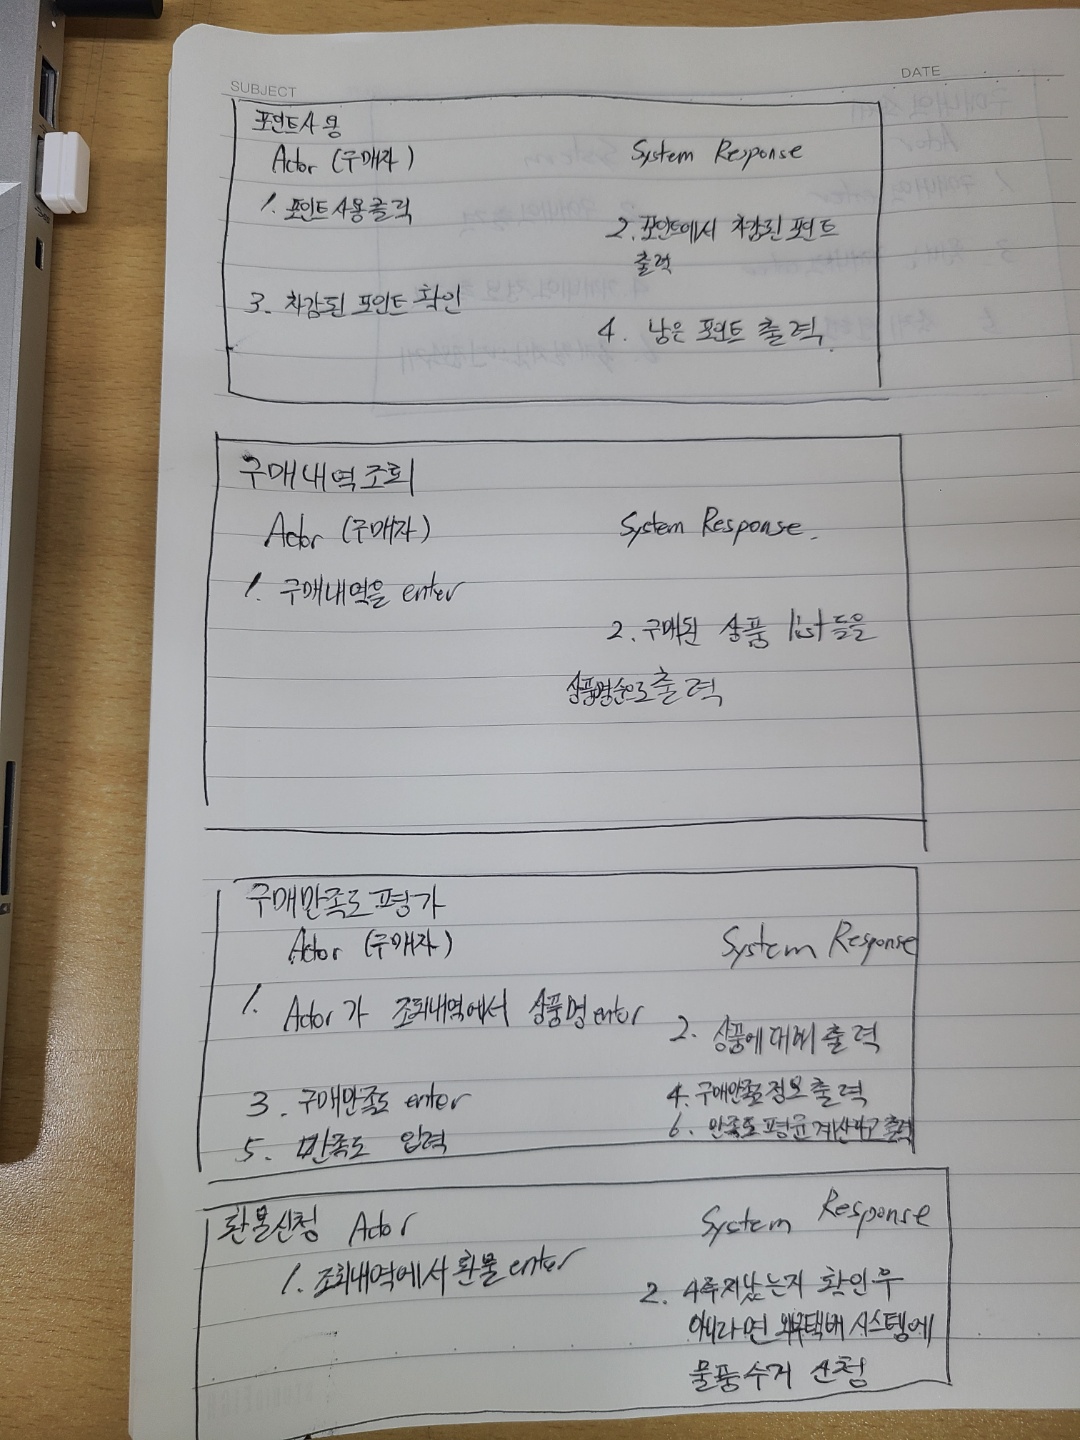 SUBJECT
DATE
포인트사용
Actor (구매자)
System Response
1. 포인트사용클릭
2. 포인트에서 차감된 포인트
출력
3. 차감된 포인트 확인
4. 남은 포인트 출력.
구매내역조회
Actor (구매자)
System Response.
1. 구매내역을 enter
2. 구매된 상품 list들을
상품명순으로 출력
구매만족도평가
Actor (구매자)
System Response
1. Actor가 조회내역에서 상품명 enter
2. 상품에 대해 출력
3. 구매만족도 enter
4. 구매만족도정보 출력
5. 만족도 입력
6. 만족도 평균 계산하고 출력
환불신청 Actor
System Response
1. 조회내역에서 환불 enter
2. 4루지났는지 확인후
아니라면 외부택배 시스템에
물품수거 신청